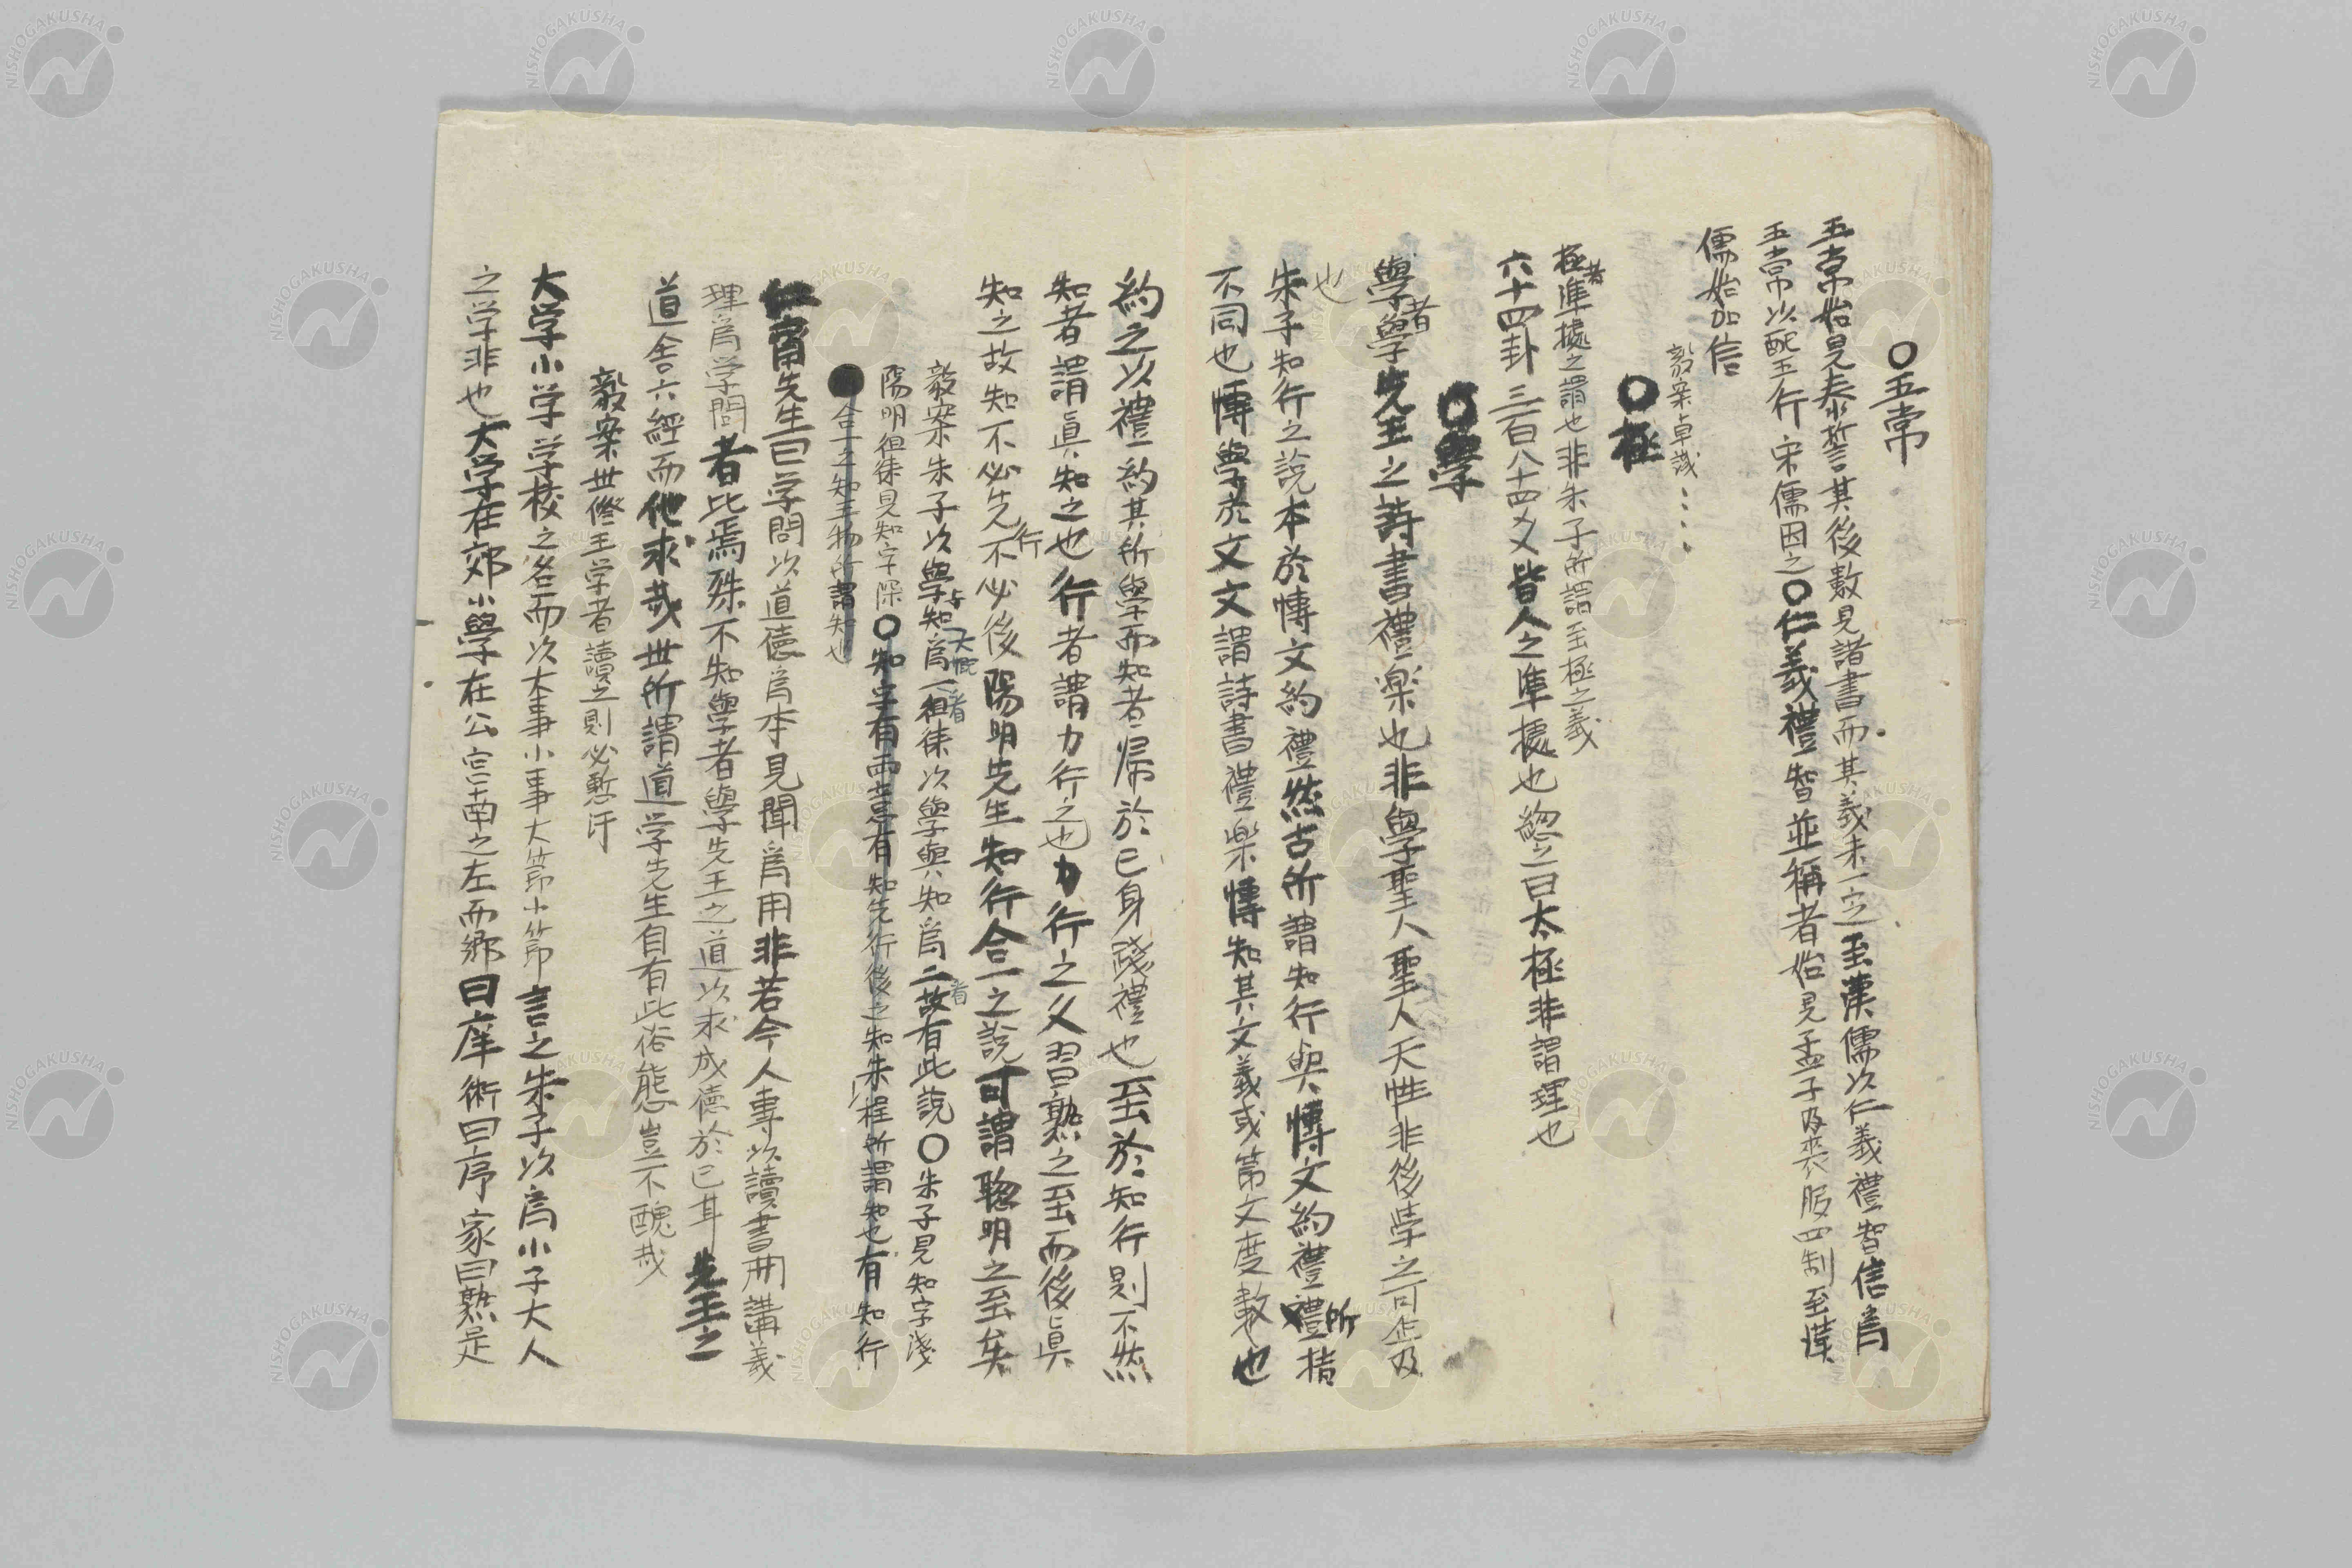 〇五常
五常始見泰誓其後數見諸書而其義未一定至漢儒以仁義禮智信爲
五常以配五行宋儒因之〇仁義禮智並稱者始見孟子及喪服四制至漢
儒始加信
毅案卓哉
〇極
極者準據之謂也非朱子所謂至極之義
六十四卦三百八十四爻皆人之準據也總之曰太極非謂理也
〇學
學者學先王之詩書禮樂也非學聖人聖人天性非後學之可企及
也
朱子知行之說本於博文約禮然古所謂知行與博文約禮所指
不同也博學於文文謂詩書禮樂博知其文義或第文度數也
約之以禮約其所學而知者帰於己身踐禮也至於知行則不然
知者謂眞知之也行者謂力行之也力行之久習熟之至而後眞
知之故知不必先行不必後陽明先生知行合一之說可謂聰明之至矣
毅案朱子以學与知爲一大慨徂徠以學與知爲二者故有此說〇朱子見知字淺
陽明徂徠見知字深〇知字有兩意有知先行後之知朱程所謂知也有知行
合一之知王物所謂知也
仁齋先生曰学問以道德爲本見聞爲用非若今人專以讀書冊講義
理爲学問者比焉殊不知學者學先王之道以求成德於己耳先王之
道舍六經而他求哉世所謂道学先生自有此俗態豈不醜哉
毅案世儒王学者讀之則必慙汗
大学小学学校之名而以大事小事大節小節言之朱子以爲小子大人
之学非也大学在郊小學在公宮南之左而鄉曰庠術曰序家曰熟是
NISHOGAKUSHA